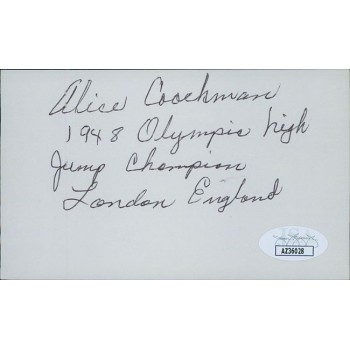 Alice Coachman
1948 Olympic high
Jump Champion
London England
AZ36028